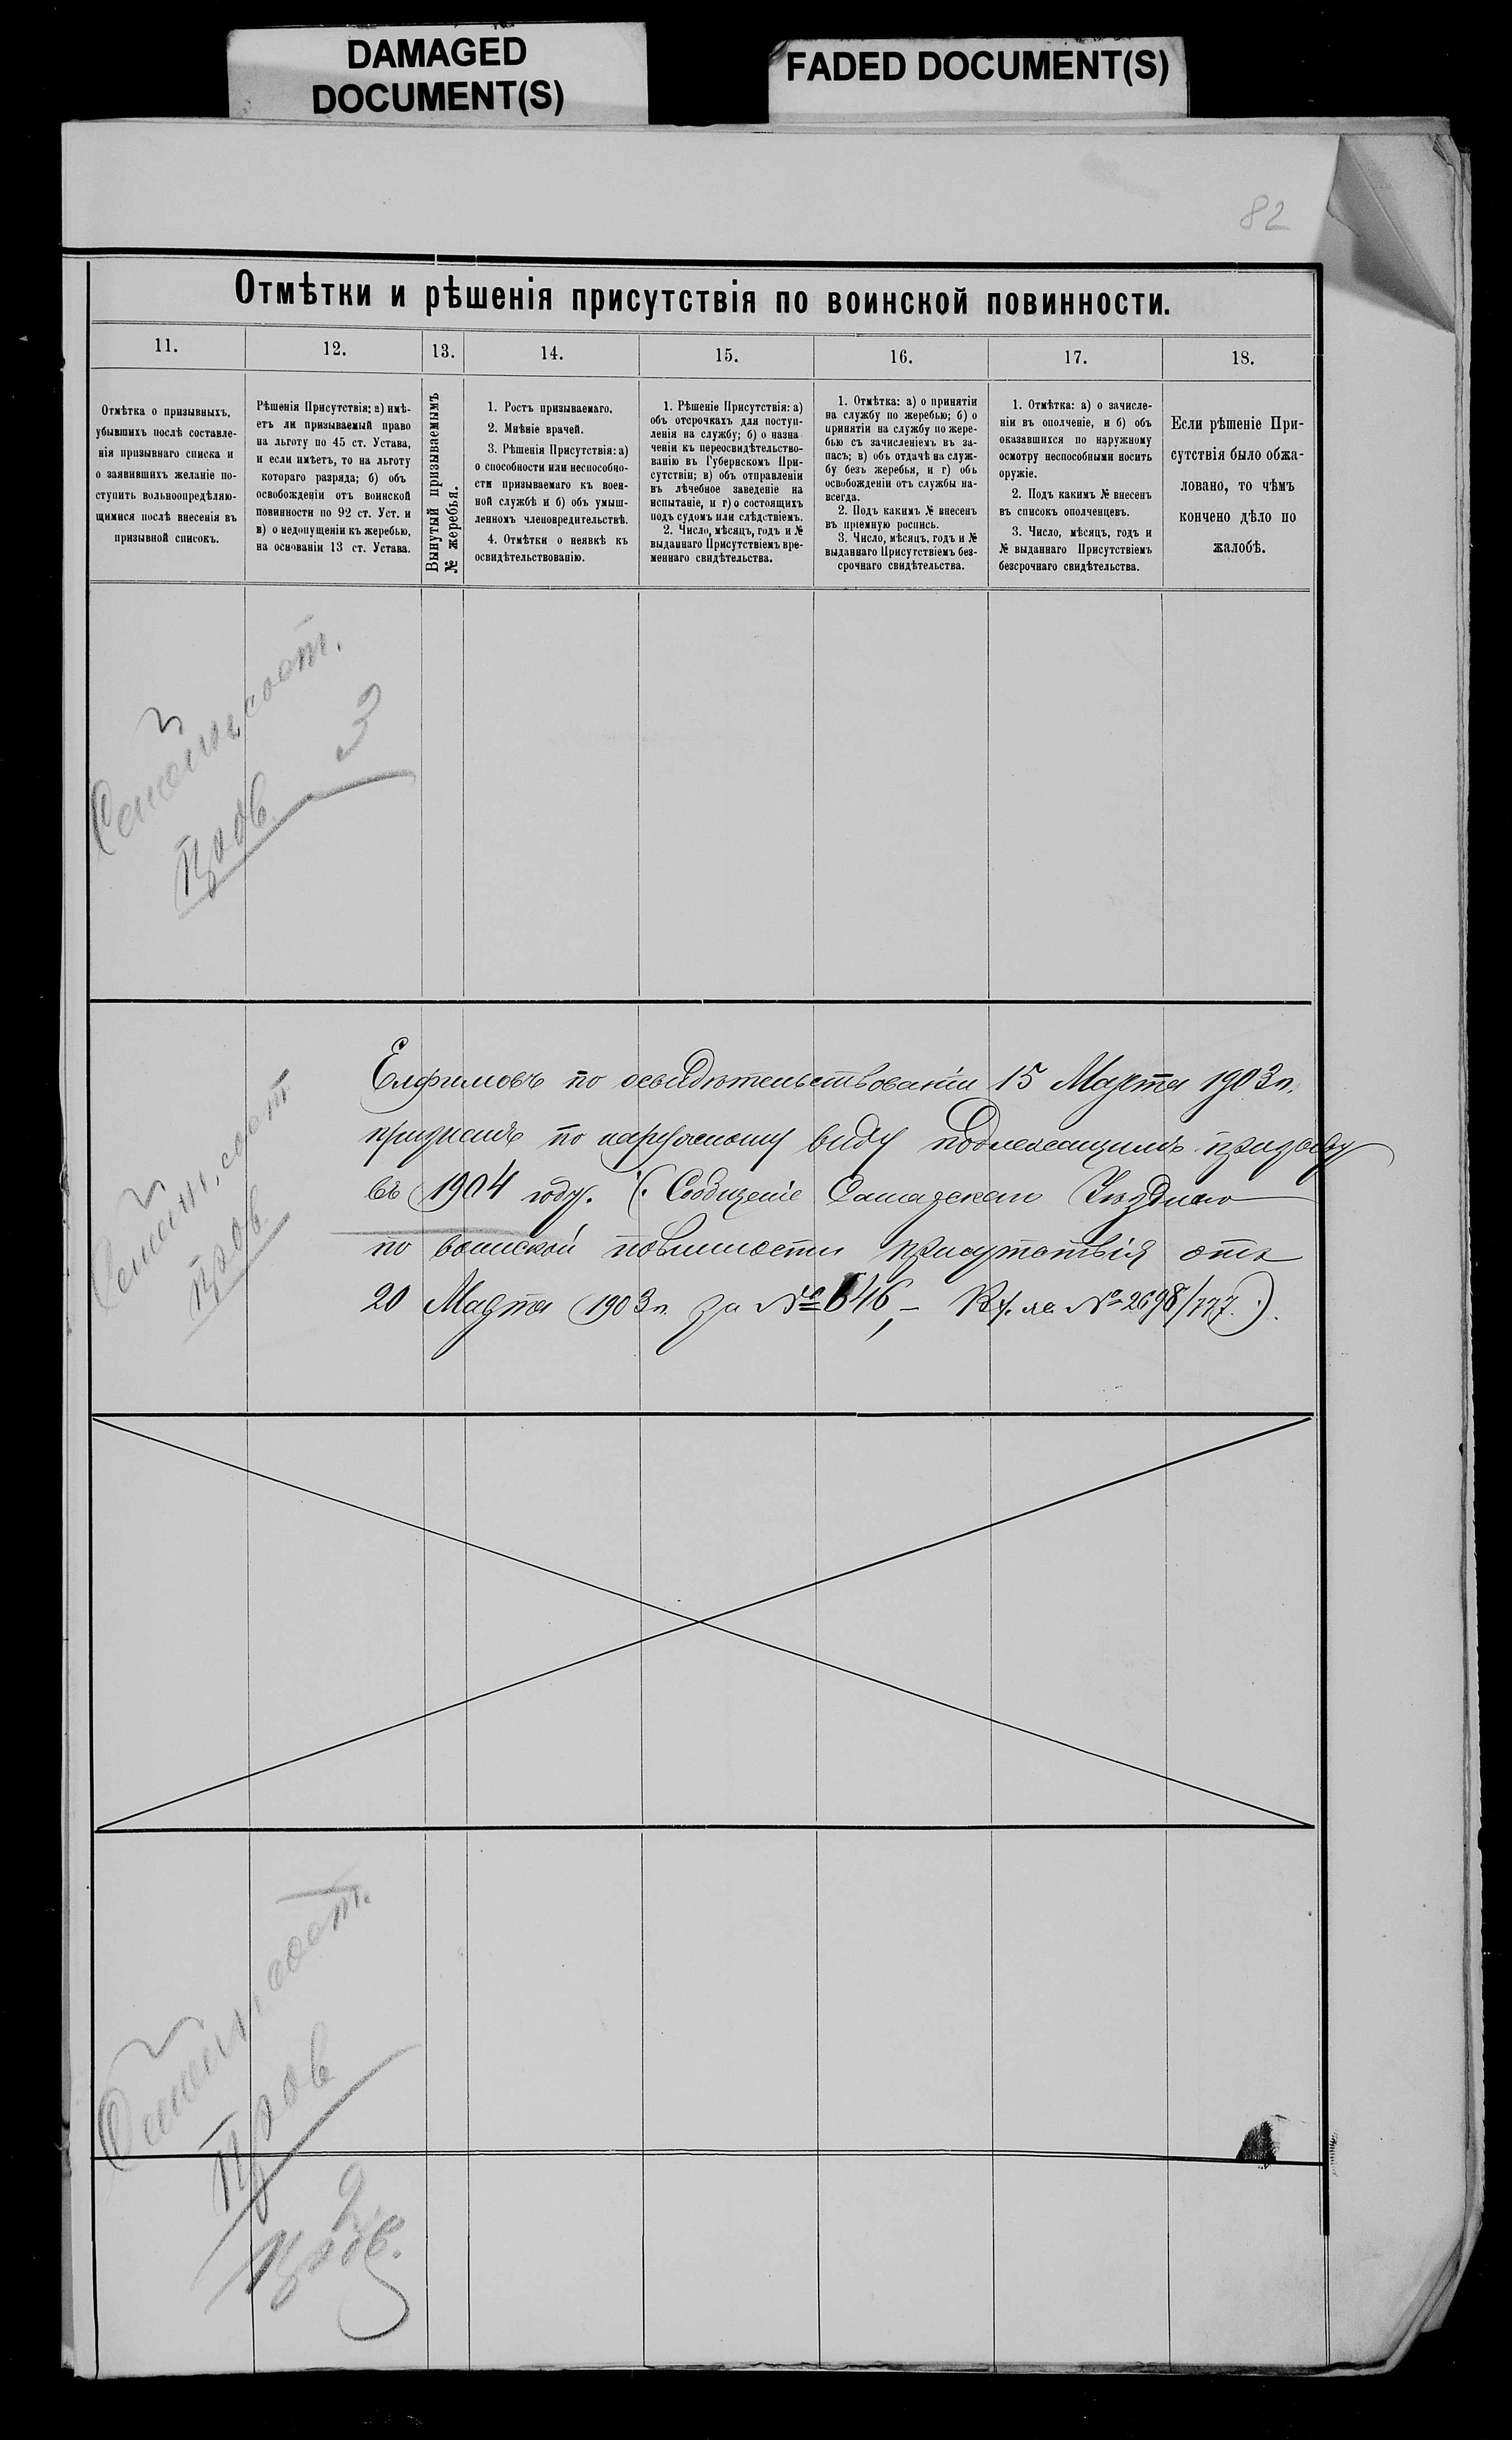 DAMAGED
DOCUMENT(S)
FADED DOCUMENT(S)
82
Отмѣтки и рѣшенія присутствія по воинской повинности.
11.
12.
13.
14.
15.
16.
17.
18.
Отмѣтка о призывныхъ,
убывшихъ послѣ составле-
нія призывнаго списка и
о заявившихъ желаніе по-
ступить вольноопредѣляю-
щимися послѣ внесенія въ
призывной списокъ.
Рѣшенія Присутствія: а) имѣ-
етъ ли призываемый право
на льготу по 45 ст. Устава,
и если имѣетъ, то на льготу
котораго разряда; б) объ
освобожденіи отъ воинской
повинности по 92 ст. Уст. и
в) о недопущеніи къ жеребью,
на основаніи 13 ст. Устава.
Вынутый призываемымъ
№ жеребья.
1. Ростъ призываемаго.
2. Мнѣніе врачей.
3. Рѣшенія Присутствія: а)
о способности или неспособно-
сти призываемаго къ воен-
ной службѣ и б) объ умыш-
ленномъ членовредительствѣ.
4. Отмѣтки о неявкѣ къ
освидѣтельствованію.
1. Рѣшеніе Присутствія: а)
объ отсрочкахъ для поступ-
ленія на службу; б) о назна
ченіи къ переосвидѣтельство-
ванію въ Губернскомъ При-
сутствіи; в) объ отправленіи
въ лѣчебное заведеніе на
испытаніе, и г) о состоящихъ
подъ судомъ или слѣдствіемъ.
2. Число, мѣсяцъ, годъ и №
выданнаго Присутствіемъ вре-
меннаго свидѣтельства.
1. Отмѣтка: а) о принятіи
на службу по жеребью; б) о
принятіи на службу по жере-
бью съ зачисленіемъ въ за-
пасъ; в) объ отдачѣ на служ-
бу безъ жеребья, и г) объ
освобожденіи отъ службы на-
всегда.
2. Подъ какимъ № внесенъ
въ пріемную роспись.
3. Число, мѣсяцъ, годъ и №
выданнаго Присутствіемъ без-
срочнаго свидѣтельства.
1. Отмѣтка: а) о зачисле-
ніи въ ополченіе, и б) объ
оказавшихся по наружному
осмотру неспособными носить
оружіе.
2. Подъ какимъ № внесенъ
въ списокъ ополченцевъ.
3. Число, мѣсяцъ, годъ и
№ выданнаго Присутствіемъ
безсрочнаго свидѣтельства.
Если рѣшеніе При-
сутствія было обжа-
ловано, то чѣмъ
кончено дѣло по
жалобѣ.
Семейн. сост.
3
Пров
Елфимовъ по освидѣтельствованіи 15 Марта 1903 г.
признанъ по наружному виду подлежащимъ призыву
въ 1904 году. (Сообщеніе Уѣзднаго
по воинской повинности присутствія отъ
20 Марта 1903 г. за № 646, – Вх. № 2698/777.).
Семейн. сост
Пров
Семейн. сост.
Пров
2
Пров.